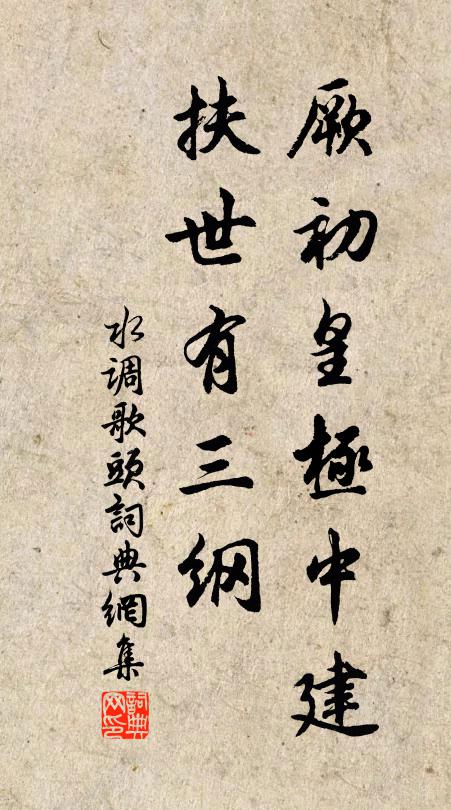 厥初皇極中建
扶世有三纲
水调歌頭詞典網集
詞典网印